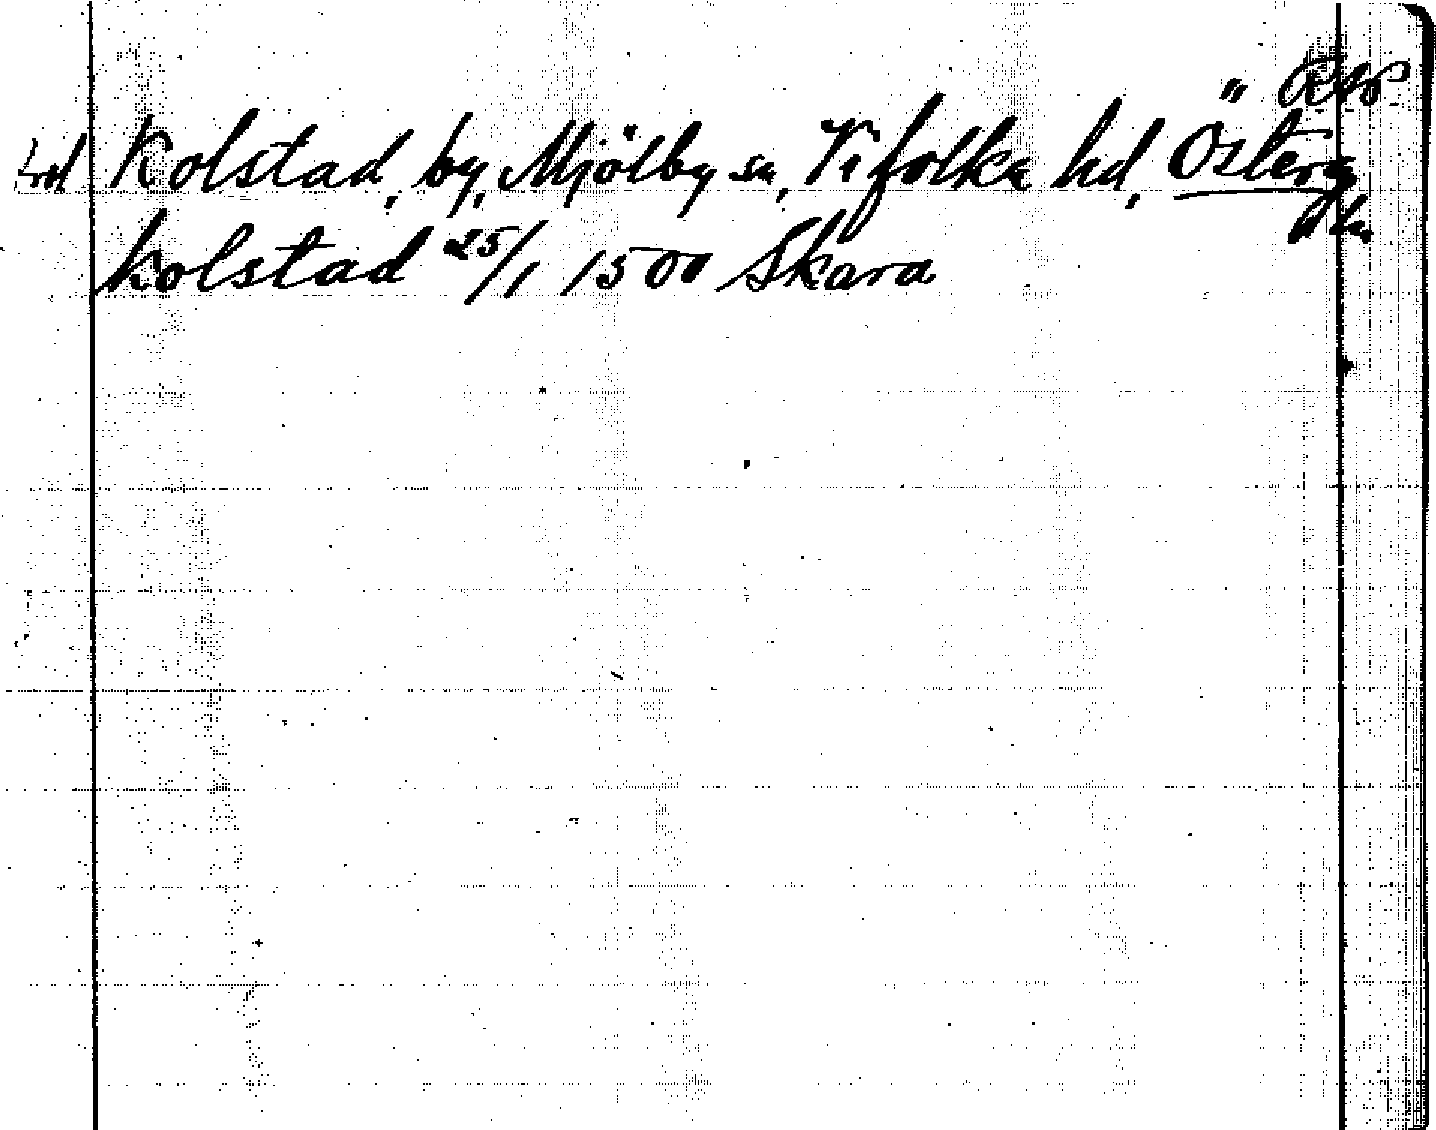 Kolstad, by, Mjölby sn, Vifolka hd, Österg
kolstad 25/1 1500 Skara